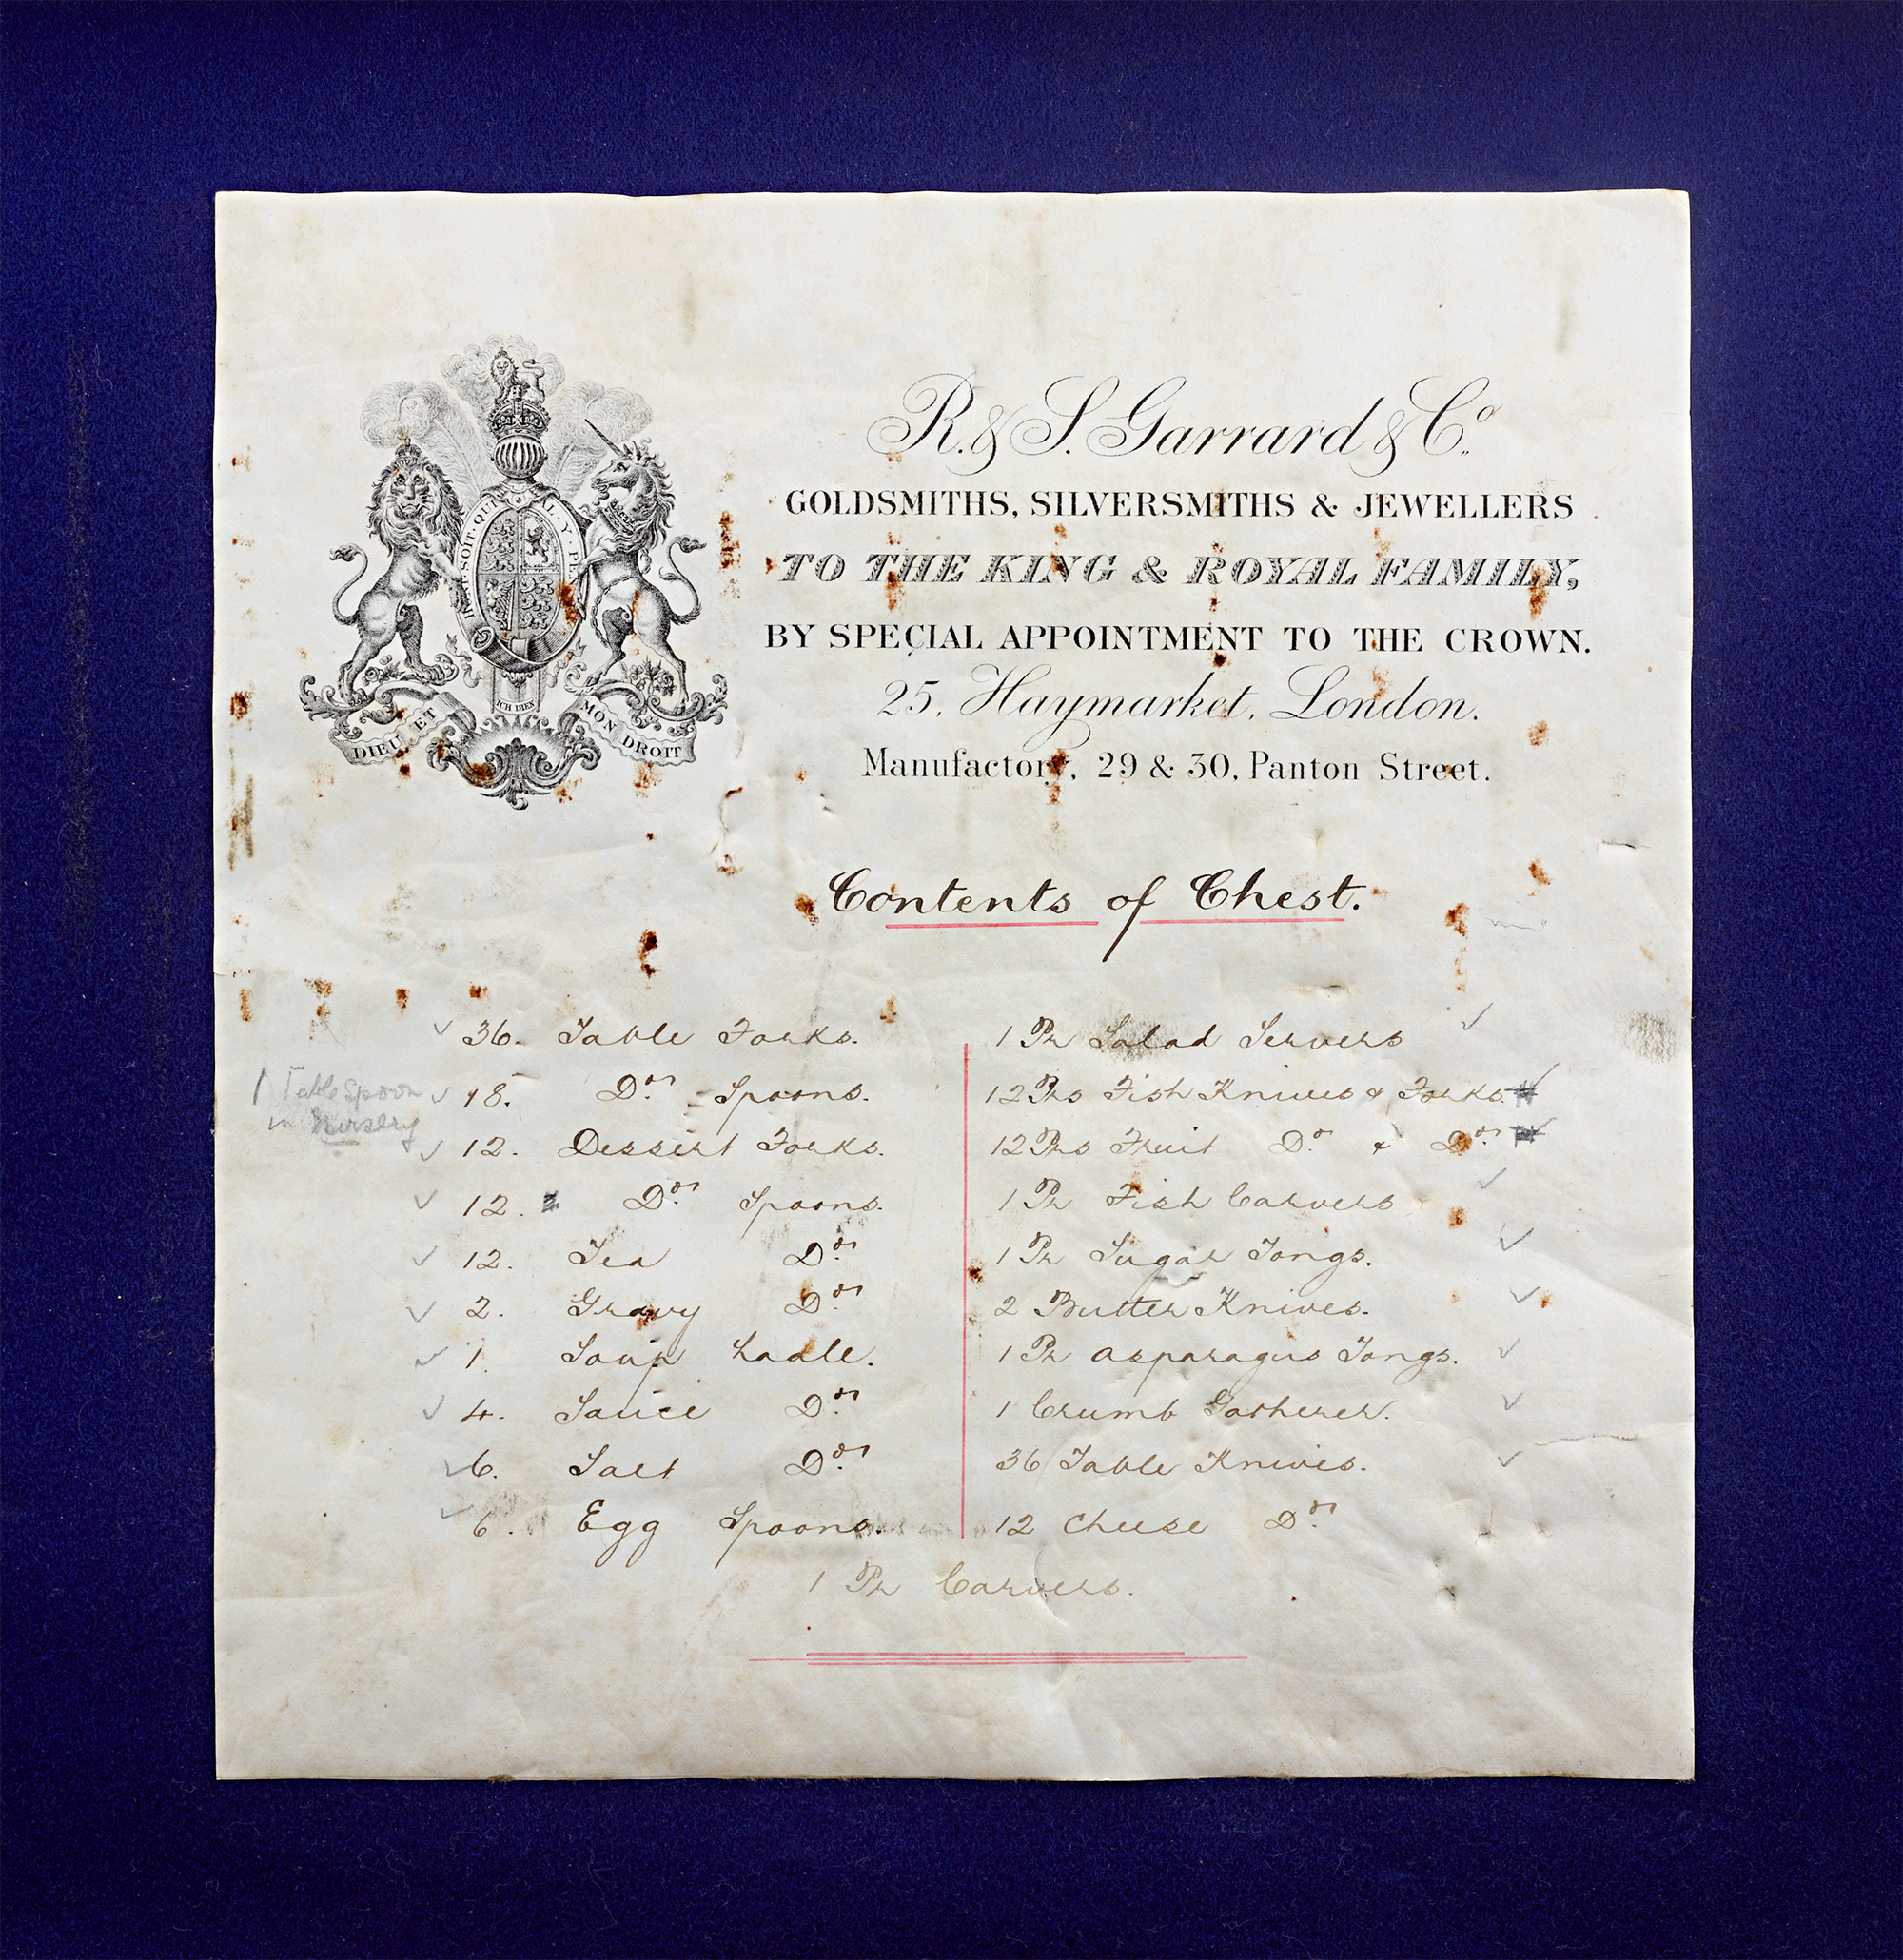 R. & S. Garrard & Co.
GOLDSMITHS, SILVERSMITHS & JEWELLERS
TO THE KING & ROYAL FAMILY,
BY SPECIAL APPOINTMENT TO THE CROWN.
25, Haymarket, London.
Manufactory, 29 & 30, Panton Street.
SOIT · QUI · AL · Y ·
ICH DIEN
DIEU ET MON DROIT
Contents of Chest.
36. Table Forks.
1 Table Spoon
in Nursery
18. Do. Spoons.
12. Dessert Forks.
12. Do. Spoons.
12. Tea Do.
2. Gravy Do.
1. Soup Ladle.
4. Sauce Do.
6. Salt Do.
6. Egg Spoons.
1 Pr Salad Servers
12 Prs Fish Knives & Forks.
12 Prs Fruit Do. & Do.
1 Pr Fish Carvers
1 Pr Sugar Tongs.
2 Butter Knives.
1 Pr Asparagus Tongs.
1 Crumb Gatherer.
36 Table Knives.
12 Cheese Do.
1 Pr Carvers.